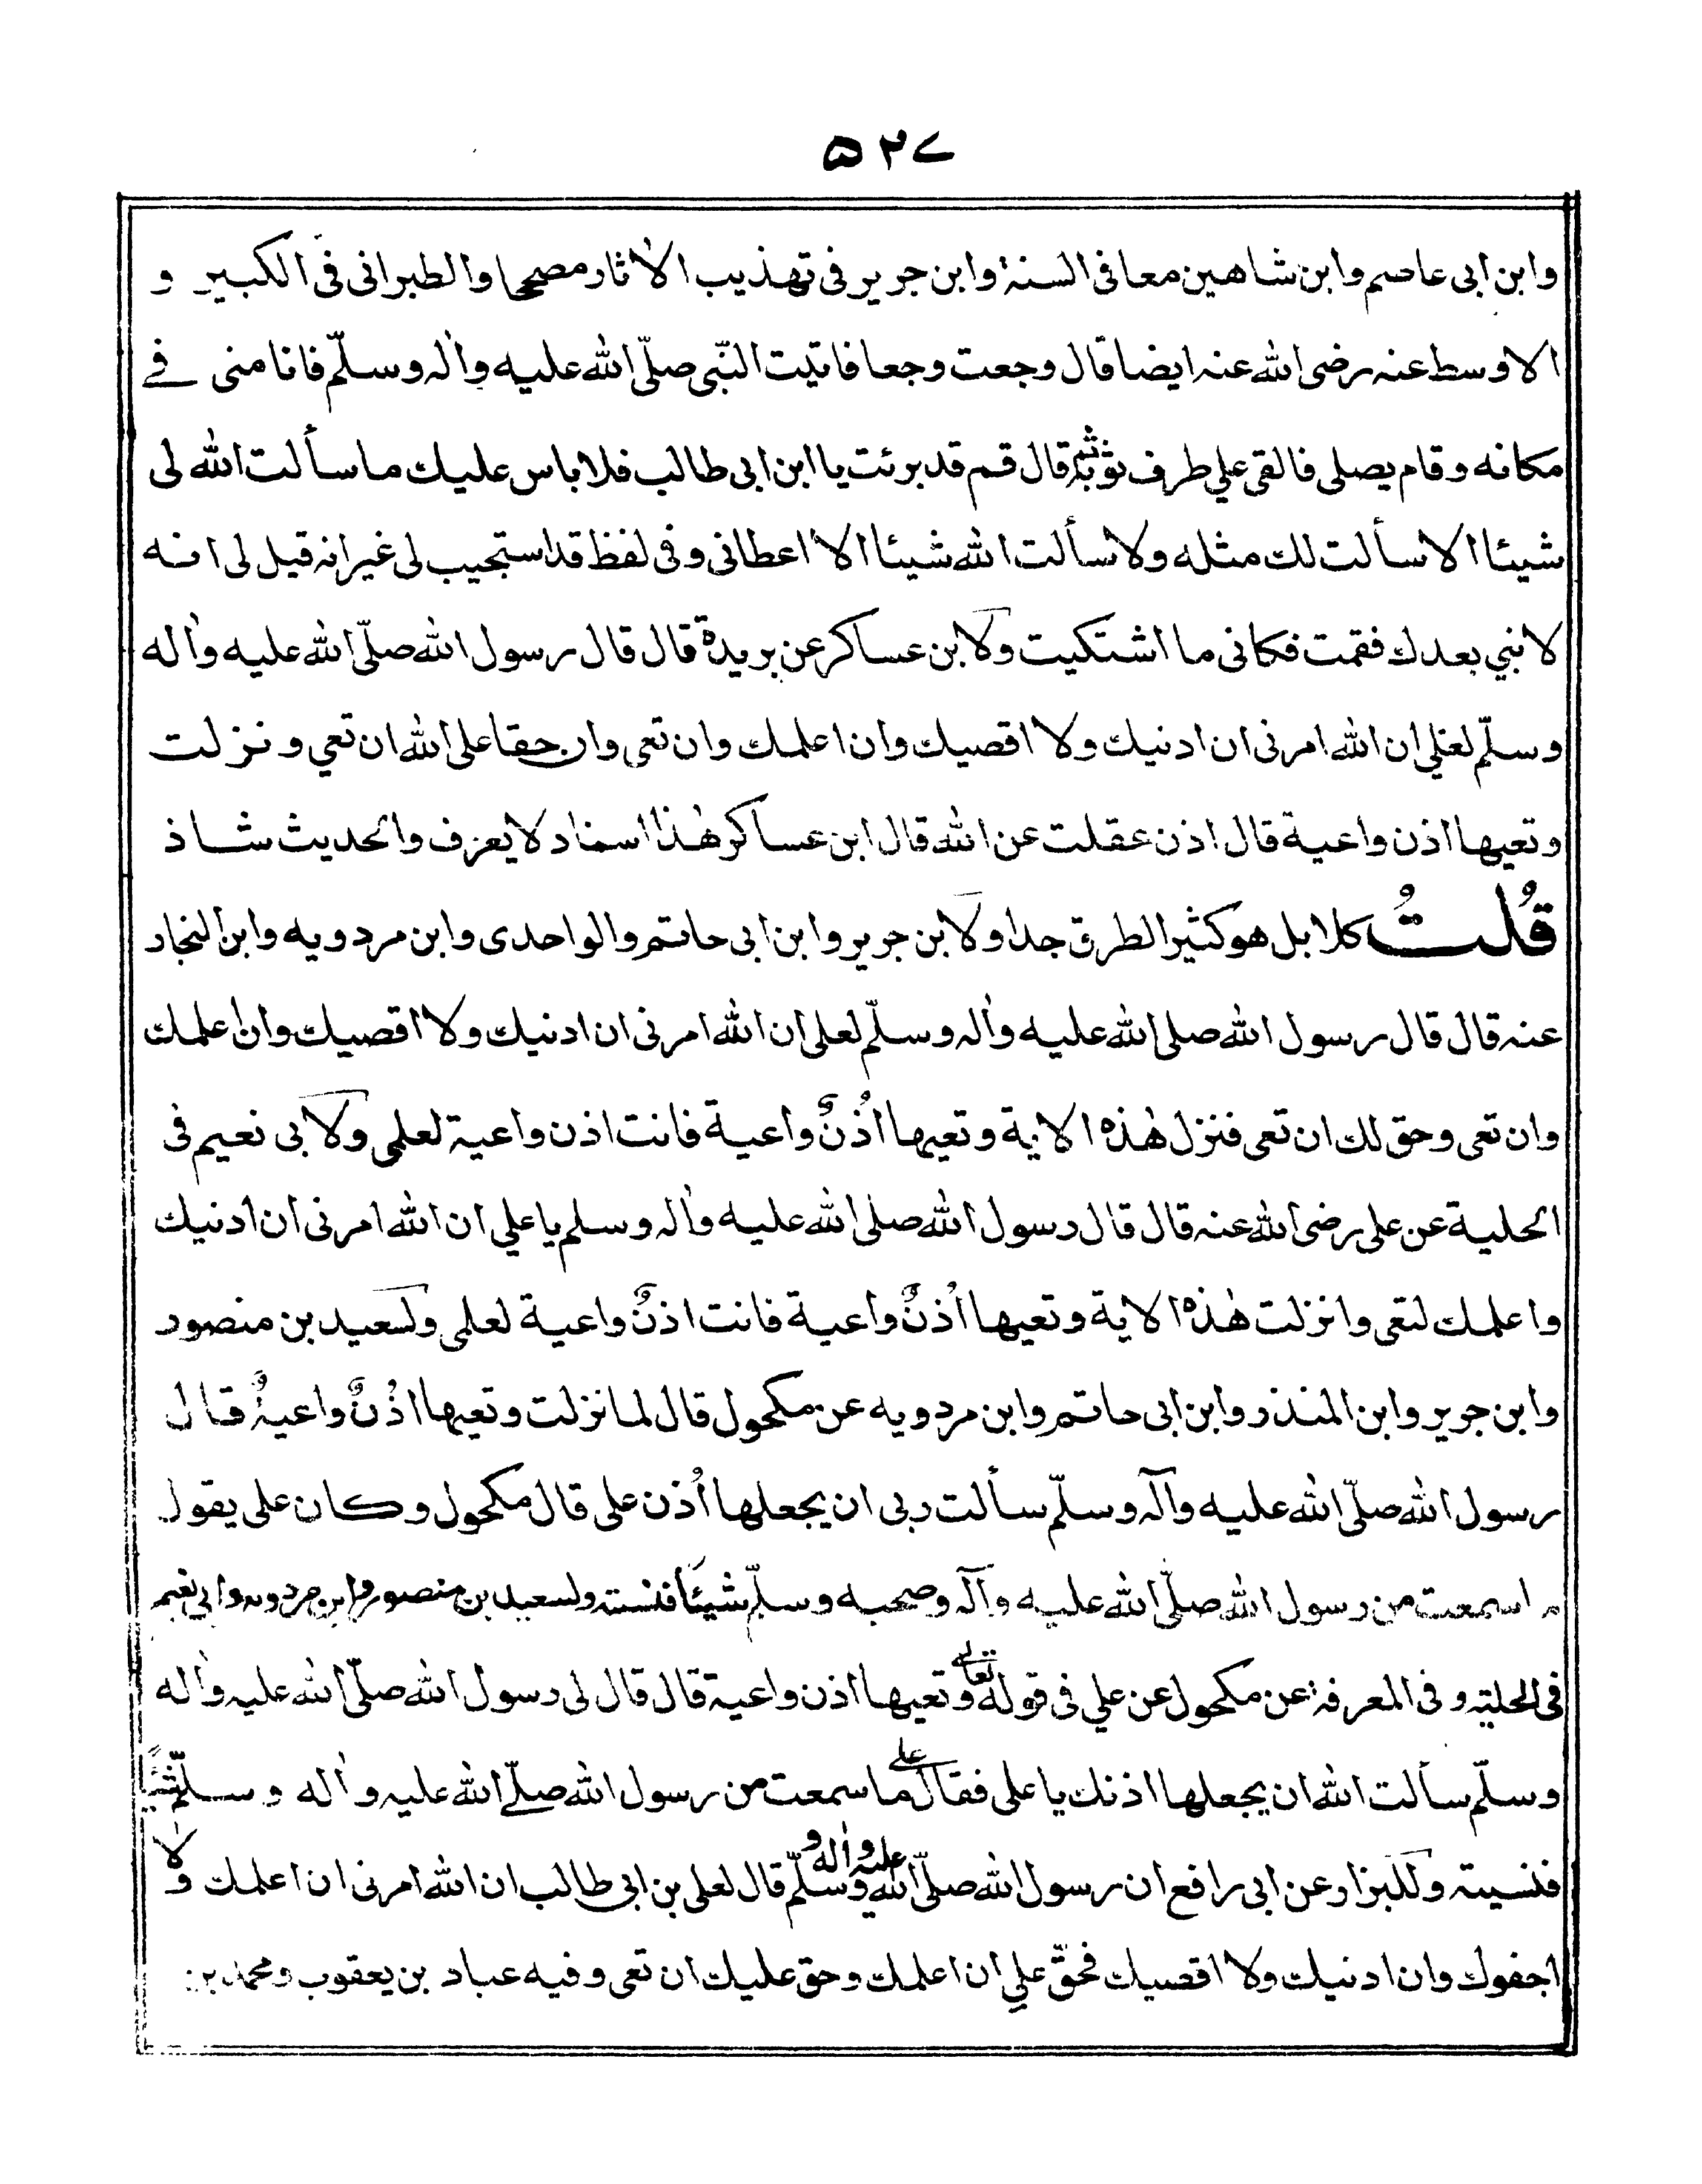 ۵۲۷
وابن ابى عاصم وابن شاهين معا فى السنة وابن جرير فى تهذيب الاٰثار مصححا والطبرانى فى الكبير و
الاوسط عنه رضى الله عنه ايضا قال وجعت وجعا فاتيت النّبى صلّى الله عليه واٰله وسلّم فانا منى فے
مكانه وقام يصلى فالقى علي طرف ثوبه ثم قال قم قد برئت يا ابن ابى طالب فلا باس عليك ما سألت الله لى
شيئا الا سألت لك مثله ولا سألت الله شيئا الا اعطانى وفى لفظ قد استجيب لى غير انه قيل لى انه
لا نبي بعدك فقمت فكانى ما اشتكيت ولابن عساكر عن بريدة قال قال رسول الله صلّى الله عليه واٰله
وسلّم لعلي ان الله امرنى ان ادنيك ولا اقصيك وان اعلمك وان تعى وان حقا على الله ان تعي ونزلت
وتعيها اذن واعية قال اذن عقلت عن الله قال ابن عساكر هٰذا اسناد لا يعرف والحديث شاذ
قُلتُ كلا بل هو كثير الطرق جدا ولابن جرير وابن ابى حاتم والواحدى وابن مردويه وابن النجار
عنه قال قال رسول الله صلى الله عليه واٰله وسلّم لعلى ان الله امرنى ان ادنيك ولا اقصيك وان اعلمك
وان تعى وحق لك ان تعى فنزل هٰذه الاية وتعيها اُذنٌ واعية فانت اذن واعية لعلمى ولابى نعيم فى
الحلية عن على رضى الله عنه قال قال رسول الله صلى الله عليه واٰله وسلم يا علي ان الله امرنى ان ادنيك
واعلمك لتعى وانزلت هٰذه الاية وتعيها اُذنٌ واعية فانت اذنٌ واعية لعلمى ولسعيد بن منصور
وابن جرير وابن المنذر وابن ابى حاتم وابن مردويه عن مكحول قال لما نزلت وتعيها اذُنٌ واعيةٌ قال
رسول الله صلّى الله عليه وآله وسلّم سألت ربى ان يجعلها اُذن على قال مكحول وكان على يقول
ما سمعت من رسول الله صلّى الله عليه وآله وصحبه وسلّم شيئا فنسيته ولسعيد بن منصور وابن مردويه وابى نعيم
فى الحلية وفى المعرفة عن مكحول عن علي فى قوله تعالے وتعيها اذن واعية قال قال لى رسول الله صلّى الله عليه واٰله
وسلّم سألت الله ان يجعلها اذنك يا على فقال علے ما سمعت من رسول الله صلّے الله عليه واٰله وسلّم شيئًا
فنسيته وللبزار عن ابى رافع ان رسول الله صلّى الله عليه واٰله وسلّم قال لعلى بن ابى طالب ان الله امرنى ان اعلمك ولا
اجفوك وان ادنيك ولا اقصيك فحقّ علي ان اعلمك وحق عليك ان تعى وفيه عباد بن يعقوب ومحمد بن